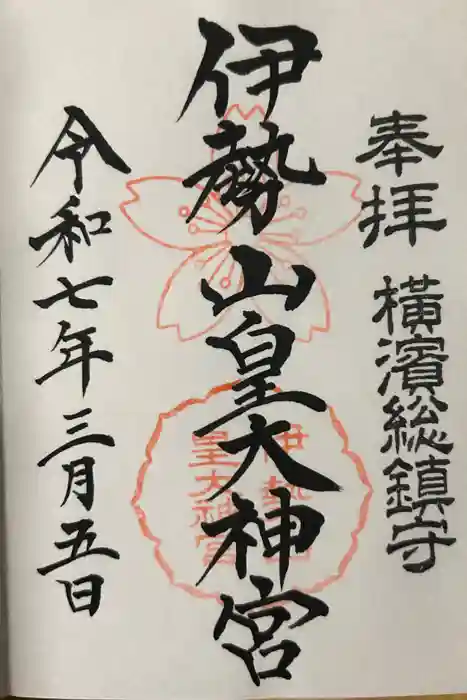 奉拝 橫濱総鎮守
伊勢山皇大神宮
伊勢山
皇大神宮
令和七年三月五日